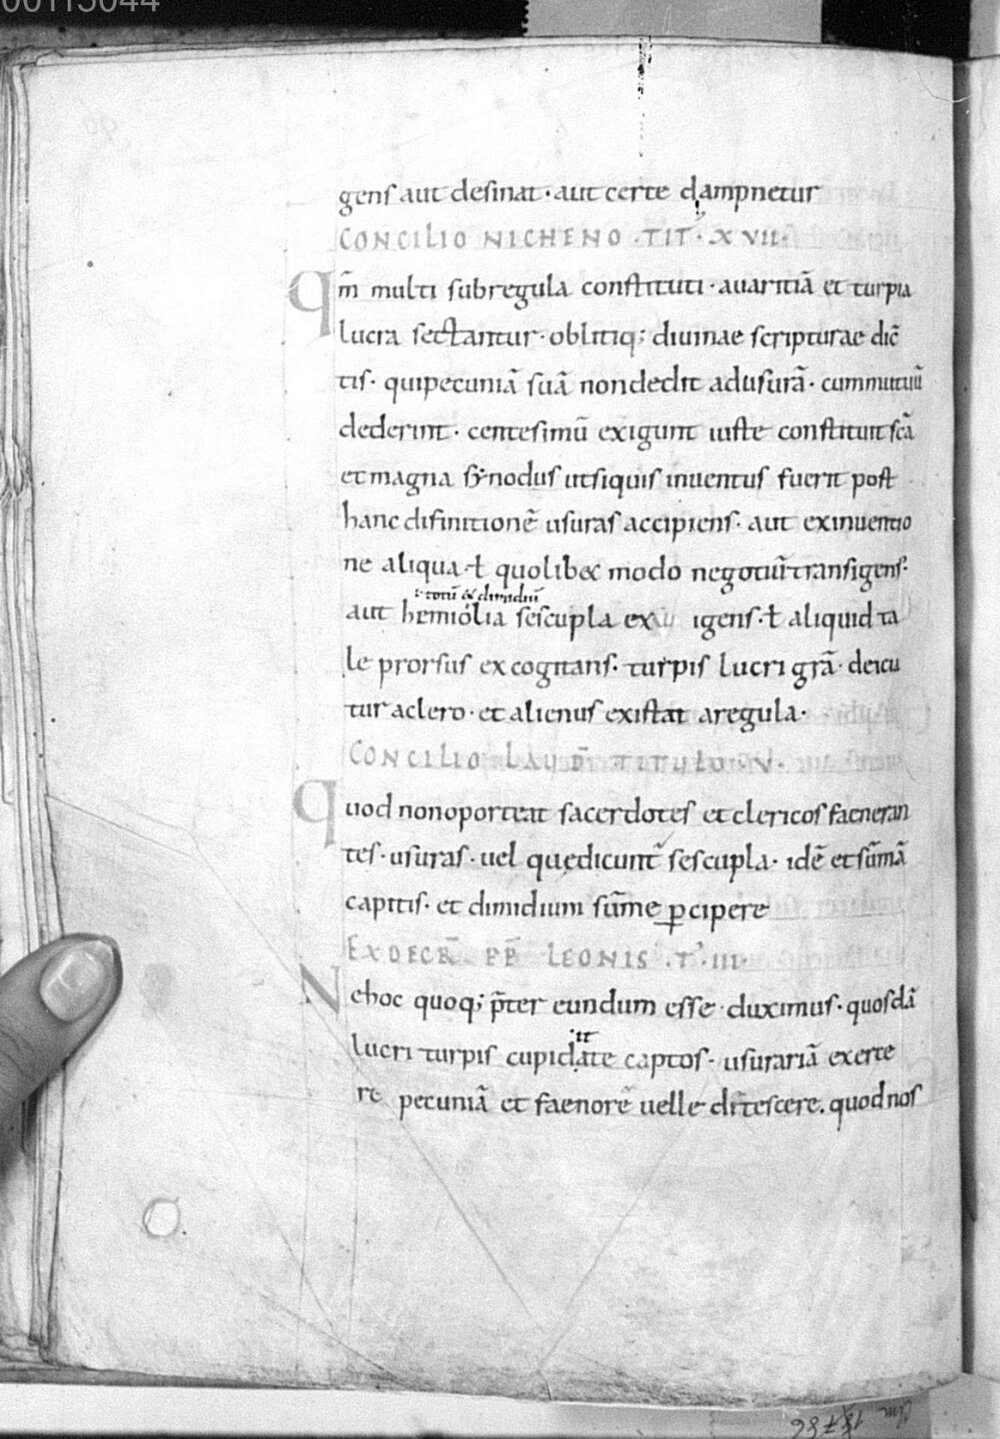 00115044
gens aut desinat· aut certe dampnetur
CONCILIO NICHENO ·TIT· XVII·
Qm̄ multi subregula constituti· avaritiā et turpia
lucra sectantur· oblitiq; divinae scripturae dic̄
tis· quipecuniā suā nondedit adusurā· cummutuū
dederint· centesimū exigunt iuste constituit sc̄a
et magna synodus utsiquis inventus fuerit post
hanc difinitionē usuras accipiens· aut exinventio
ne aliqua· ł quolib& modo negotiūtransigens·
·i· totū & dimidiū
aut hemiolia sescupla ex igens· ł aliquid ta
le prorsus excogitans· turpis lucri grā· deicia
tur aclero· et alienus existat aregula·
CONCILIO LAUD̄ TITULO· V·
Quod nonoporteat sacerdotes et clericos faeneran
tes· usuras· vel quędicunt sescupla· idē et sūmā
capitis· et dimidium sūme ꝑcipere
EX DECR̄ PP̄ LEONIS ·T· III·
Nec hoc quoq; p̄ter eundum esse· duximus· quosdā
it
lucri turpis cupidate captos· usurariā exerce
re pecuniā et faenorē velle ditescere. quod nos